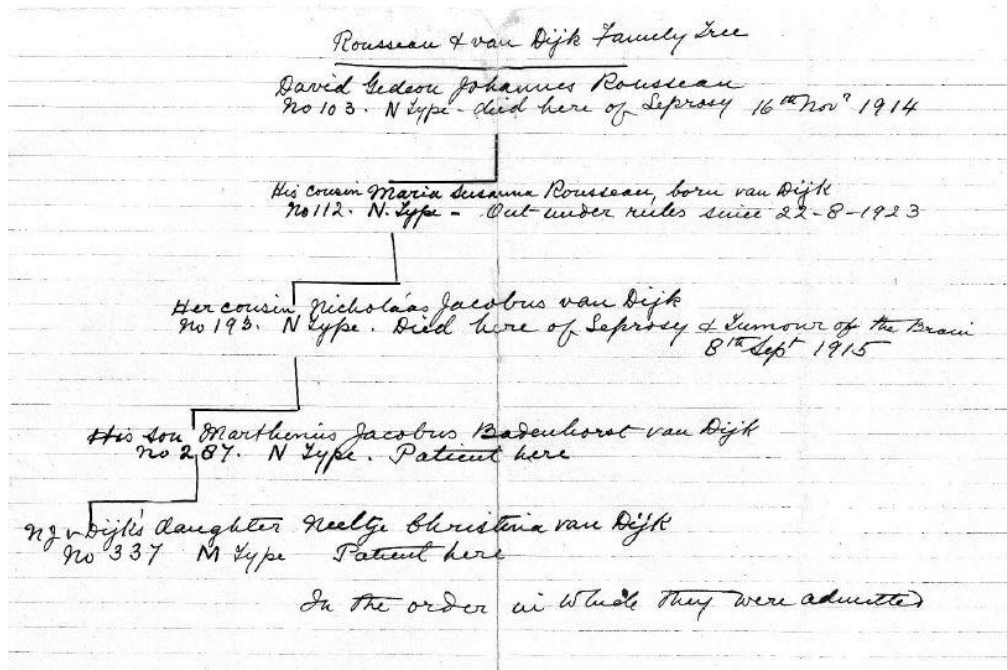 Rousseau & van Dijk Family Tree
David Gedeon Johannes Rousseau
No 103. N Type - died here of Leprosy 16th Novr 1914
His cousin Maria Susanna Rousseau, born van Dijk
No 112. N. Type - Out under rules since 22-8-1923
Her cousin Nicholaas Jacobus van Dijk
No 193. N Type. Died here of Leprosy & Tumour of the Brain
8th Sept 1915
His son Marthenius Jacobus Badenhorst van Dijk
No 287. N Type. Patient here
NJ v Dijk's daughter Neeltje Christina van Dijk
No 337 M Type Patient here
In the order in which they were admitted